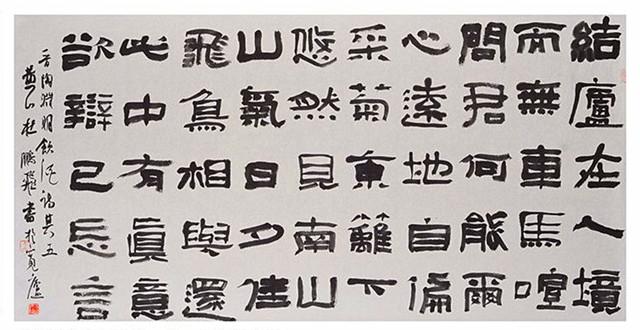 結廬在人境
而無車馬喧
問君何能爾
心遠地自偏
采菊東籬下
悠然見南山
山氣日夕佳
飛鳥相與還
此中有眞意
欲辯已忘言
晉陶淵明飲酒詩其五
杜鵬飛書於寬廬